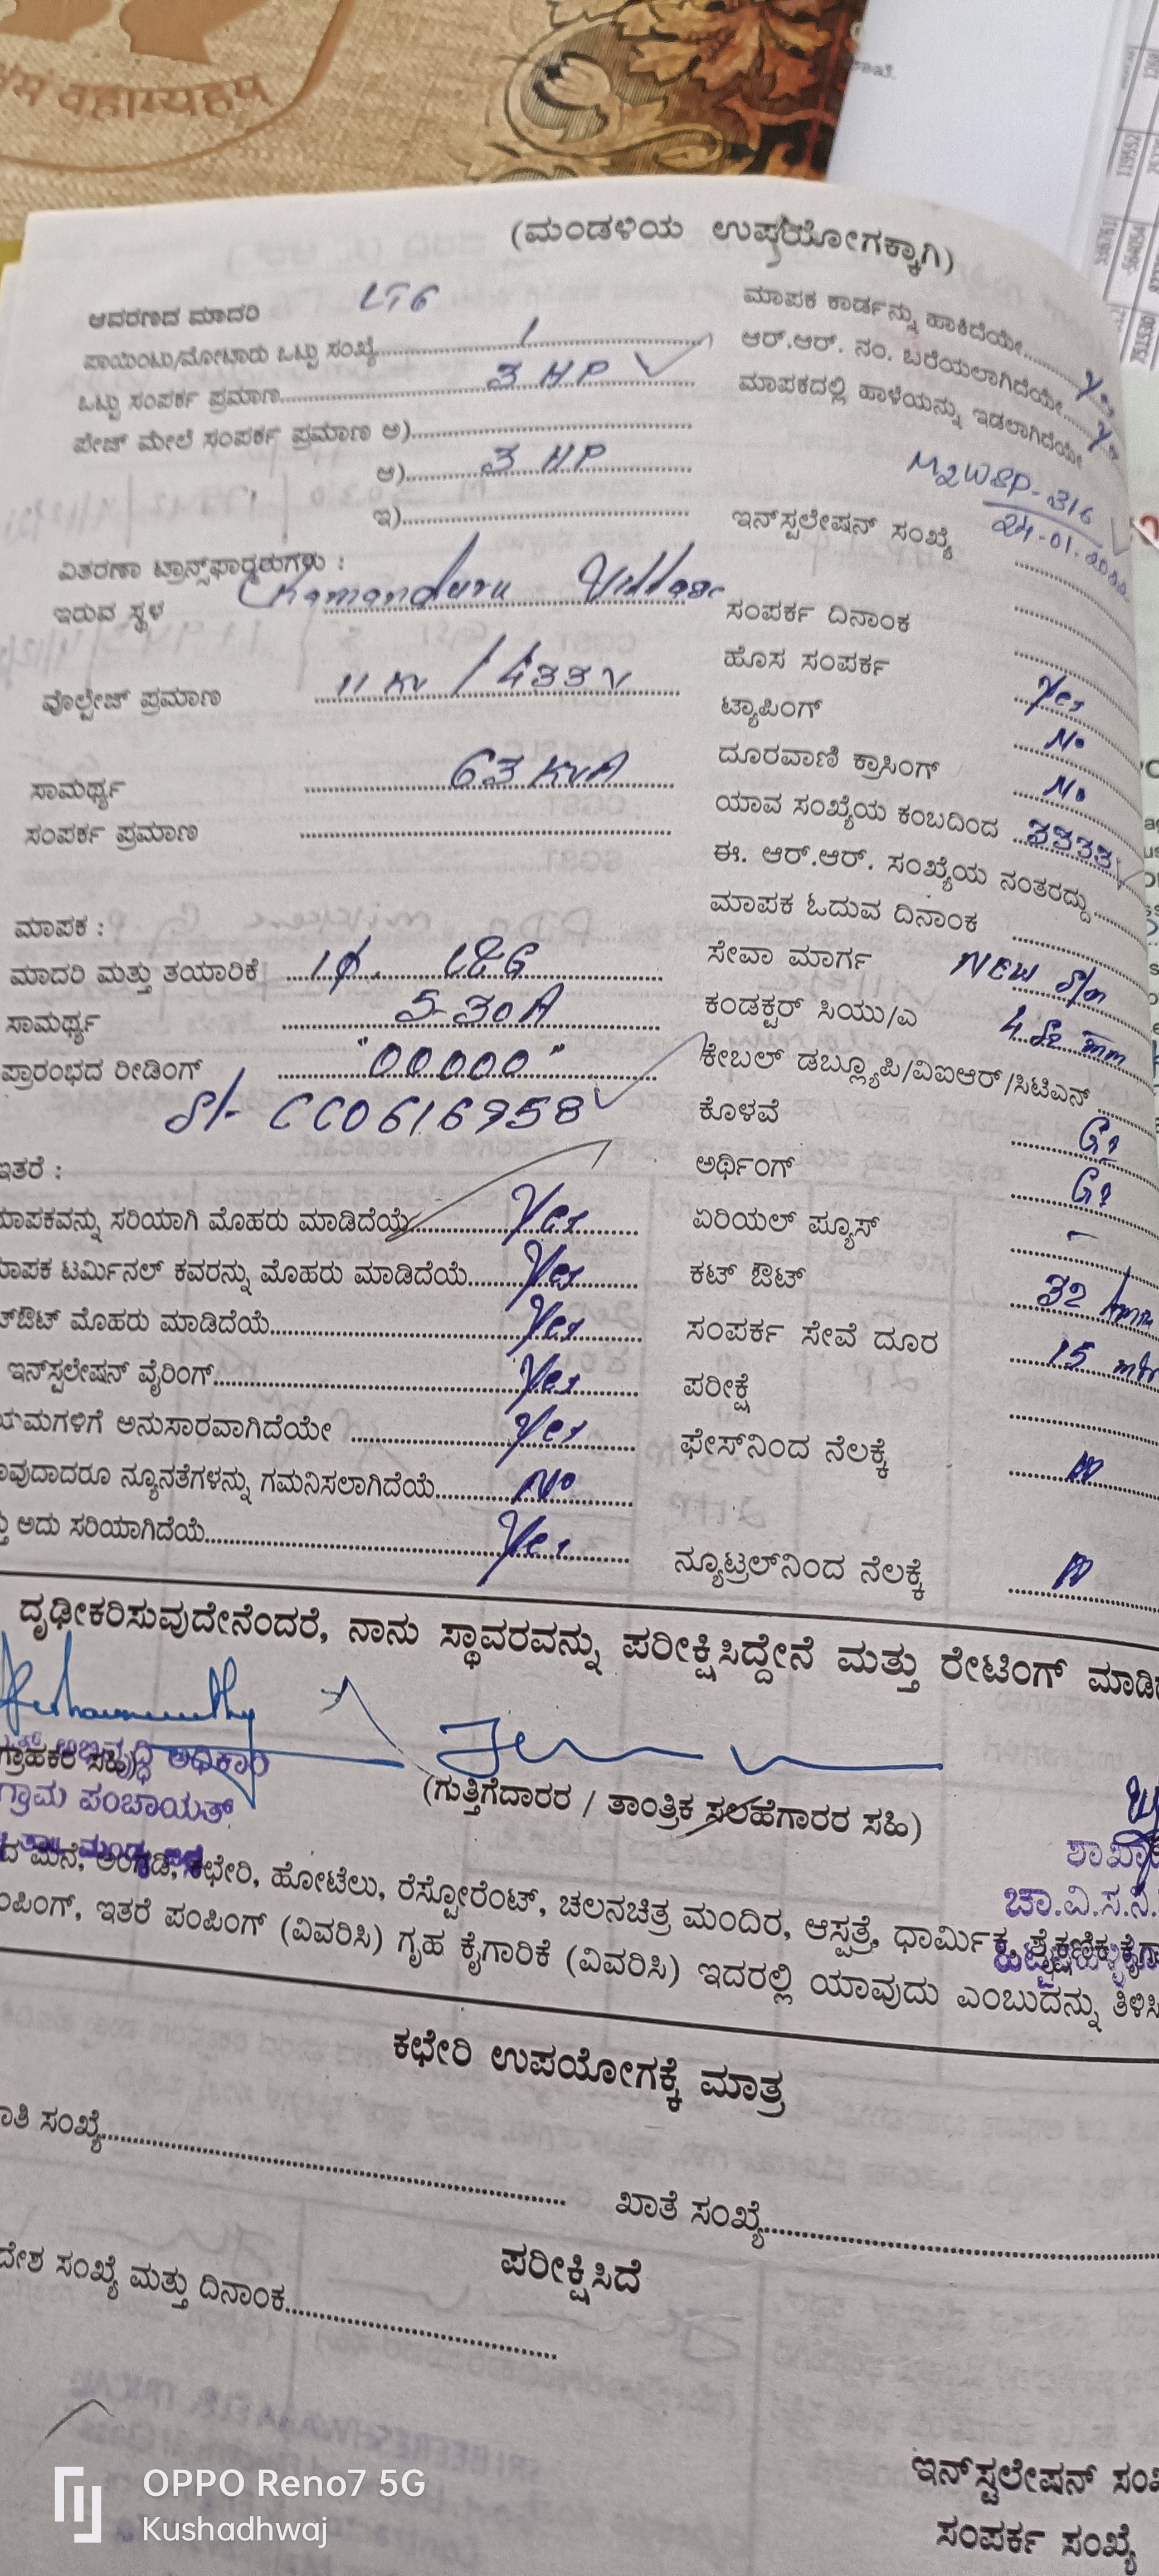 (ಮಂಡಳಿಯ ಉಪಯೋಗಕ್ಕಾಗಿ)
ಆವರಣದ ಮಾದರಿ LT6
ಪಾಯಿಂಟು/ಮೋಟಾರು ಒಟ್ಟು ಸಂಖ್ಯೆ 1
ಒಟ್ಟು ಸಂಪರ್ಕ ಪ್ರಮಾಣ 3 HP
ಪೇಜ್ ಮೇಲೆ ಸಂಪರ್ಕ ಪ್ರಮಾಣ ಅ)
ಆ) 3 HP
ಇ)
ವಿತರಣಾ ಟ್ರಾನ್ಸ್‌ಫಾರ್ಮರುಗಳು :
ಇರುವ ಸ್ಥಳ Chamanduru Village
ವೊಲ್ಟೇಜ್ ಪ್ರಮಾಣ 11 KV / 433 V
ಸಾಮರ್ಥ್ಯ 63 KVA
ಸಂಪರ್ಕ ಪ್ರಮಾಣ
ಮಾಪಕ :
ಮಾದರಿ ಮತ್ತು ತಯಾರಿಕೆ 1φ. L&G
ಸಾಮರ್ಥ್ಯ 5-30A
ಪ್ರಾರಂಭದ ರೀಡಿಂಗ್ "00000"
Sl- CC0616958
ಇತರೆ :
ಮಾಪಕವನ್ನು ಸರಿಯಾಗಿ ಮೊಹರು ಮಾಡಿದೆಯೆ Yes
ಮಾಪಕ ಟರ್ಮಿನಲ್ ಕವರನ್ನು ಮೊಹರು ಮಾಡಿದೆಯೆ Yes
ಟ್‌ಔಟ್ ಮೊಹರು ಮಾಡಿದೆಯೆ Yes
ಇನ್‌ಸ್ಟಲೇಷನ್ ವೈರಿಂಗ್ Yes
ಯಮಗಳಿಗೆ ಅನುಸಾರವಾಗಿದೆಯೇ Yes
ವುದಾದರೂ ನ್ಯೂನತೆಗಳನ್ನು ಗಮನಿಸಲಾಗಿದೆಯೆ No
ಅದು ಸರಿಯಾಗಿದೆಯೆ Yes
ಮಾಪಕ ಕಾರ್ಡನ್ನು ಹಾಕಿದೆಯೇ
ಆರ್.ಆರ್. ನಂ. ಬರೆಯಲಾಗಿದೆಯೇ
ಮಾಪಕದಲ್ಲಿ ಹಾಳೆಯನ್ನು ಇಡಲಾಗಿದೆಯೇ
M2WSP-316
ಇನ್‌ಸ್ಟಲೇಷನ್ ಸಂಖ್ಯೆ
ಸಂಪರ್ಕ ದಿನಾಂಕ
ಹೊಸ ಸಂಪರ್ಕ Yes
ಟ್ಯಾಪಿಂಗ್ No
ದೂರವಾಣಿ ಕ್ರಾಸಿಂಗ್ No
ಯಾವ ಸಂಖ್ಯೆಯ ಕಂಬದಿಂದ
ಈ. ಆರ್.ಆರ್. ಸಂಖ್ಯೆಯ ನಂತರದ್ದು
ಮಾಪಕ ಓದುವ ದಿನಾಂಕ
ಸೇವಾ ಮಾರ್ಗ NEW S/m
ಕಂಡಕ್ಟರ್ ಸಿಯು/ಎ 4 Sq mm
ಕೇಬಲ್ ಡಬ್ಲ್ಯೂಪಿ/ವಿಐಆರ್/ಸಿಟಿಎನ್
ಕೊಳವೆ GI
ಅರ್ಥಿಂಗ್ GI
ಏರಿಯಲ್ ಪ್ಯೂಸ್ -
ಕಟ್ ಔಟ್ 32
ಸಂಪರ್ಕ ಸೇವೆ ದೂರ 15 mtr
ಪರೀಕ್ಷೆ
ಫೇಸ್‌ನಿಂದ ನೆಲಕ್ಕೆ
ನ್ಯೂಟ್ರಲ್‌ನಿಂದ ನೆಲಕ್ಕೆ
ದೃಢೀಕರಿಸುವುದೇನೆಂದರೆ, ನಾನು ಸ್ಥಾವರವನ್ನು ಪರೀಕ್ಷಿಸಿದ್ದೇನೆ ಮತ್ತು ರೇಟಿಂಗ್
ಗ್ರಾಹಕರ ಸಹಿ)
ಅಭಿವೃದ್ಧಿ ಅಧಿಕಾರಿ
ಗ್ರಾಮ ಪಂಚಾಯತ್
(ಗುತ್ತಿಗೆದಾರರ / ತಾಂತ್ರಿಕ ಸಲಹೆಗಾರರ ಸಹಿ)
ಚಾ.ವಿ.ಸ.ನಿ.
ದ ಮನೆ, ಅಂಗಡಿ, ಕಛೇರಿ, ಹೋಟೆಲು, ರೆಸ್ಟೋರೆಂಟ್, ಚಲನಚಿತ್ರ ಮಂದಿರ, ಆಸ್ಪತ್ರೆ, ಧಾರ್ಮಿಕ, ಶೈಕ್ಷಣಿಕ,
ಪಿಂಗ್, ಇತರೆ ಪಂಪಿಂಗ್ (ವಿವರಿಸಿ) ಗೃಹ ಕೈಗಾರಿಕೆ (ವಿವರಿಸಿ) ಇದರಲ್ಲಿ ಯಾವುದು ಎಂಬುದನ್ನು ತಿಳಿಸಿ
ಕಛೇರಿ ಉಪಯೋಗಕ್ಕೆ ಮಾತ್ರ
ಸಂಖ್ಯೆ
ಖಾತೆ ಸಂಖ್ಯೆ
ಪರೀಕ್ಷಿಸಿದೆ
ದೇಶ ಸಂಖ್ಯೆ ಮತ್ತು ದಿನಾಂಕ
ಇನ್‌ಸ್ಟಲೇಷನ್
ಸಂಪರ್ಕ ಸಂಖ್ಯೆ
OPPO Reno7 5G
Kushadhwaj